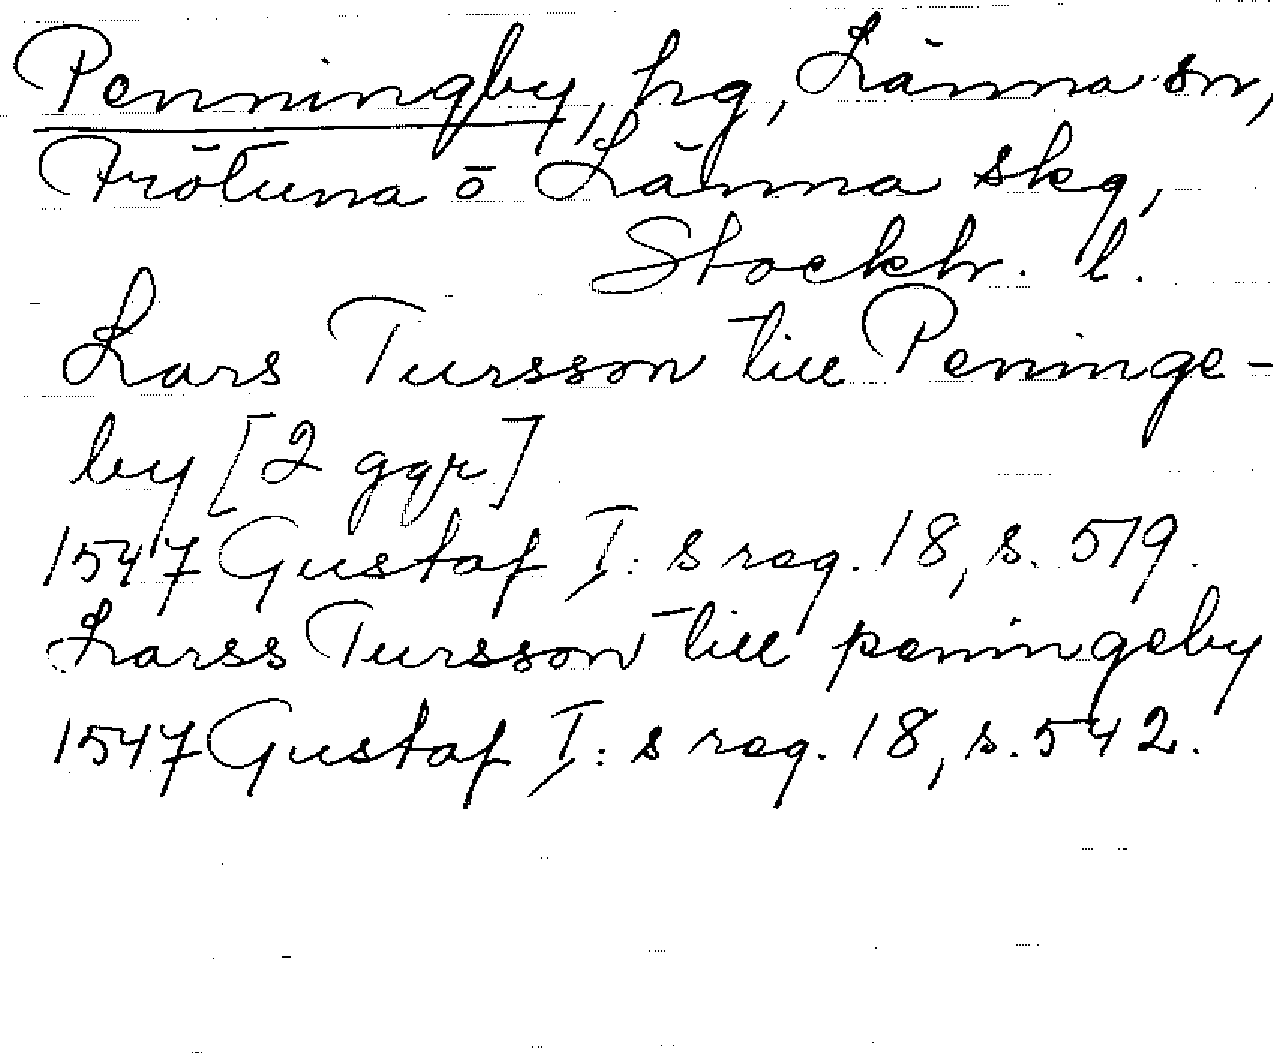 Penningby, hg, Länna sn,
Frötuna o Länna skg,
Stockh. l.
Lars Tursson till Peninge-
by [2 ggr]
1547 Gustaf I: s reg. 18, s. 519.
Larss Tursson till peningeby
1547 Gustaf I: s reg. 18, s. 542.